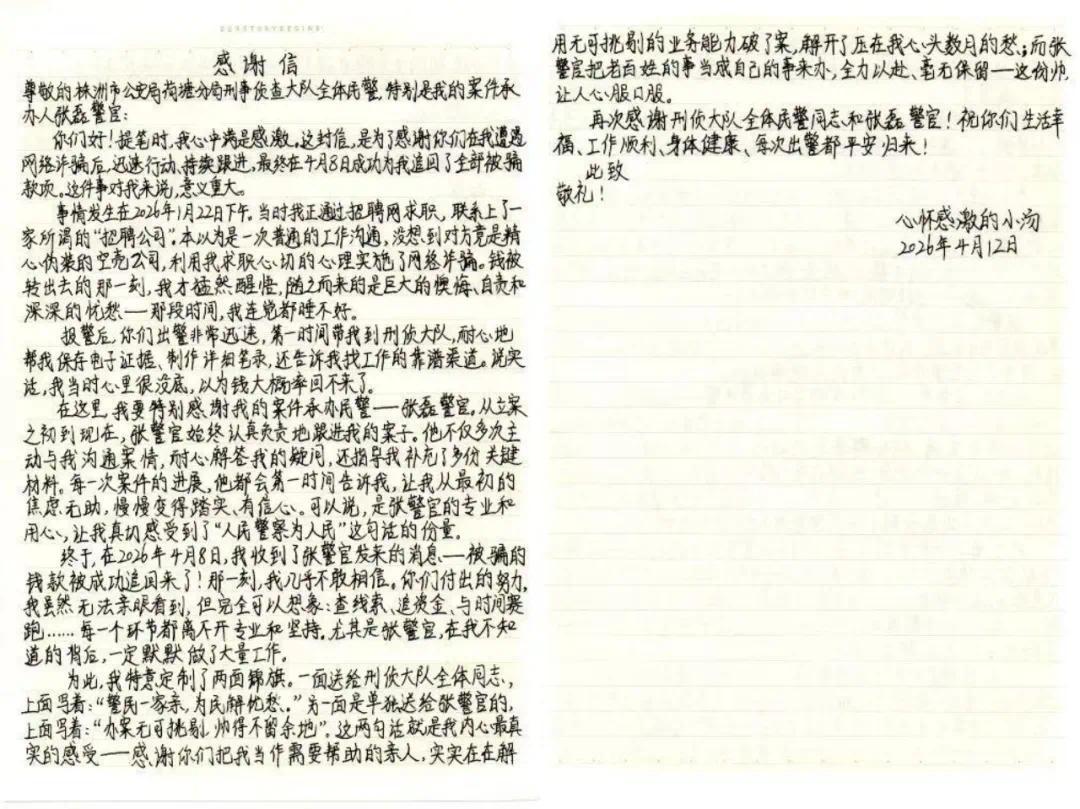 感谢信
尊敬的株洲市公安局荷塘分局刑事侦查大队全体民警,特别是我的案件承
办人张磊警官:
你们好!提笔时,我心中满是感激。这封信,是为了感谢你们在我遭遇
网络诈骗后,迅速行动、持续跟进,最终在4月8日成功为我追回了全部被骗
款项。这件事对我来说,意义重大。
事情发生在2026年1月22日下午。当时我正通过招聘网求职,联系上了一
家所谓的“招聘公司”。本以为是一次普通的工作沟通,没想到对方竟是精
心伪装的空壳公司,利用我求职心切的心理实施了网络诈骗。钱被
转出去的那一刻,我才猛然醒悟,随之而来的是巨大的懊悔、自责和
深深的忧愁——那段时间,我连觉都睡不好。
报警后,你们出警非常迅速,第一时间带我到刑侦大队,耐心地
帮我保存电子证据、制作详细笔录,还告诉我找工作的靠谱渠道。说实
话,我当时心里很没底,以为钱大概率回不来了。
在这里,我要特别感谢我的案件承办民警——张磊警官。从立案
之初到现在,张警官始终认真负责地跟进我的案子。他不仅多次主
动与我沟通案情,耐心解答我的疑问,还指导我补充了多份关键
材料。每一次案件的进展,他都会第一时间告诉我,让我从最初的
焦虑无助,慢慢变得踏实、有信心。可以说,是张警官的专业和
用心,让我真切感受到了“人民警察为人民”这句话的份量。
终于,在2026年4月8日,我收到了张警官发来的消息——被骗的
钱款被成功追回来了!那一刻,我几乎不敢相信。你们付出的努力,
我虽然无法亲眼看到,但完全可以想象:查线索、追资金、与时间赛
跑……每一个环节都离不开专业和坚持。尤其是张警官,在我不知
道的背后,一定默默做了大量工作。
为此,我特意定制了两面锦旗。一面送给刑侦大队全体同志,
上面写着:“警民一家亲,为民解忧愁。”另一面是单独送给张警官的,
上面写着:“办案无可挑剔,帅得不留余地”。这两句话就是我内心最真
实的感受——感谢你们把我当作需要帮助的亲人,实实在在解
用无可挑剔的业务能力破了案,解开了压在我心头数月的愁;而张
警官把老百姓的事当成自己的事来办,全力以赴、毫无保留——这份帅,
让人心服口服。
再次感谢刑侦大队全体民警同志和张磊警官!祝你们生活幸
福、工作顺利、身体健康、每次出警都平安归来!
此致
敬礼!
心怀感激的小汤
2026年4月12日